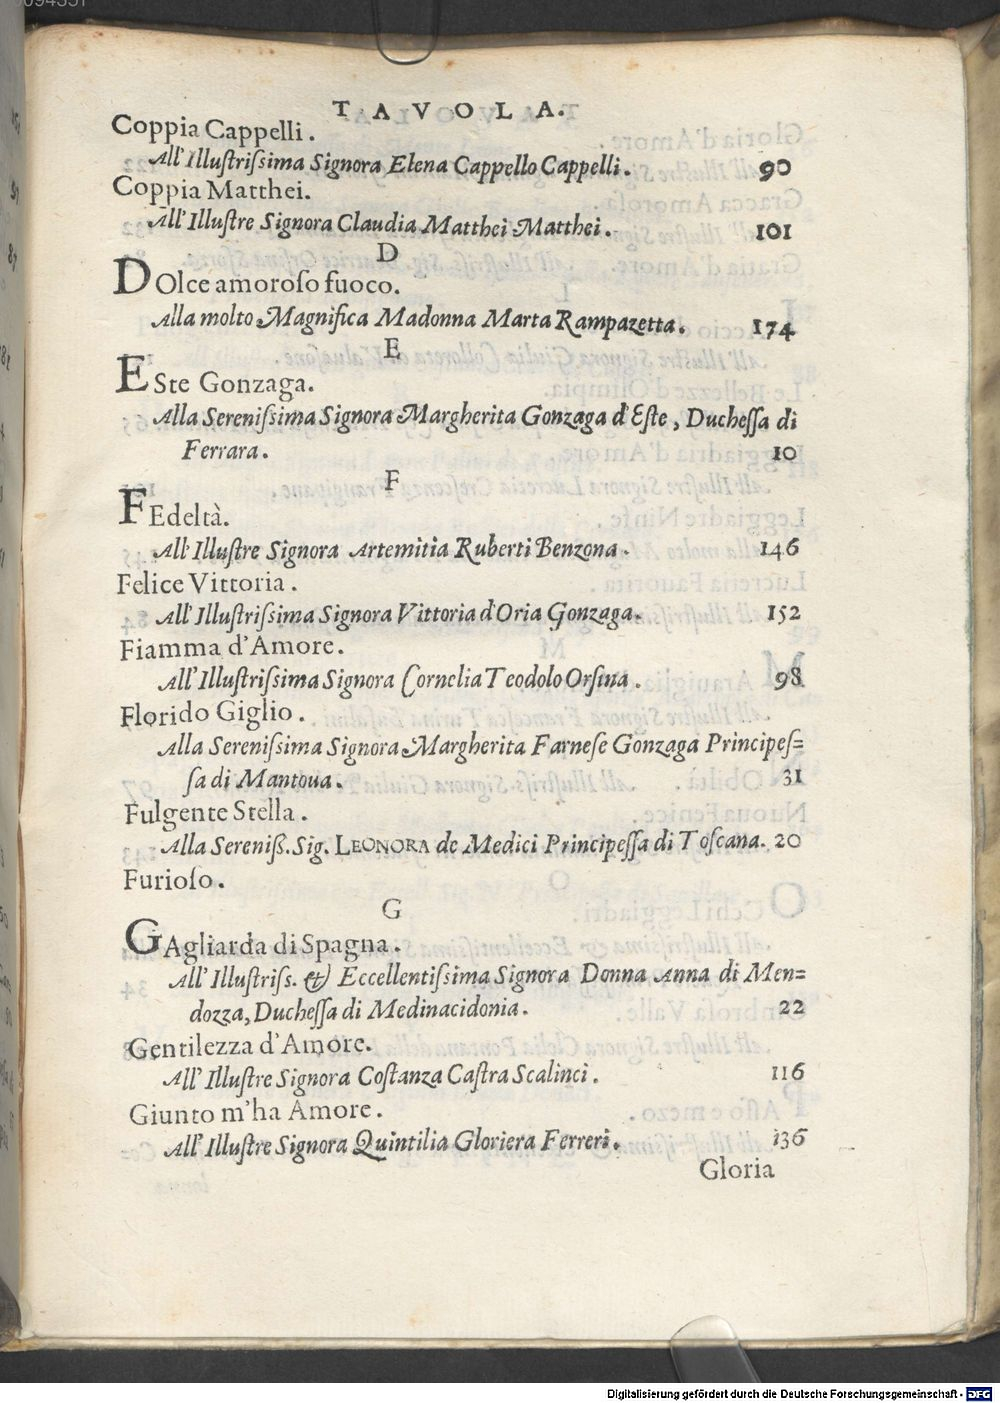 TAVOLA.
Coppia Cappelli.
All'Illustriſsima Signora Elena Cappello Cappelli. 90
Coppia Matthei.
All'Illuſtre Signora Claudia Matthei Matthei. 101
D
DOlce amoroſo fuoco.
Alla molto Magnifica Madonna Marta Rampazetta. 174
E
ESte Gonzaga.
Alla Sereniſsima Signora Margherita Gonzaga d'Eſte, Ducheſſa di
Ferrara. 10
F
FEdeltà.
All'Illuſtre Signora Artemitia Ruberti Benzona. 146
Felice Vittoria.
All'Illuſtriſsima Signora Vittoria d'Oria Gonzaga. 152
Fiamma d'Amore.
All'Illuſtriſsima Signora Cornelia Teodolo Orſina. 98
Florido Giglio.
Alla Sereniſsima Signora Margherita Farneſe Gonzaga Principeſ=
ſa di Mantoua. 31
Fulgente Stella.
Alla Sereniß. Sig. LEONORA de Medici Principeſſa di Toſcana. 20
Furioſo.
G
GAgliarda di Spagna.
All'Illuſtriſs. & Eccellentiſsima Signora Donna Anna di Men=
dozza, Ducheſſa di Medinacidonia. 22
Gentilezza d'Amore.
All'Illuſtre Signora Coſtanza Caſtra Scalinci. 116
Giunto m'ha Amore.
All'Illuſtre Signora Quintilia Gloriera Ferreri. 136
Gloria
Digitalisierung gefördert durch die Deutsche Forschungsgemeinschaft - DFG